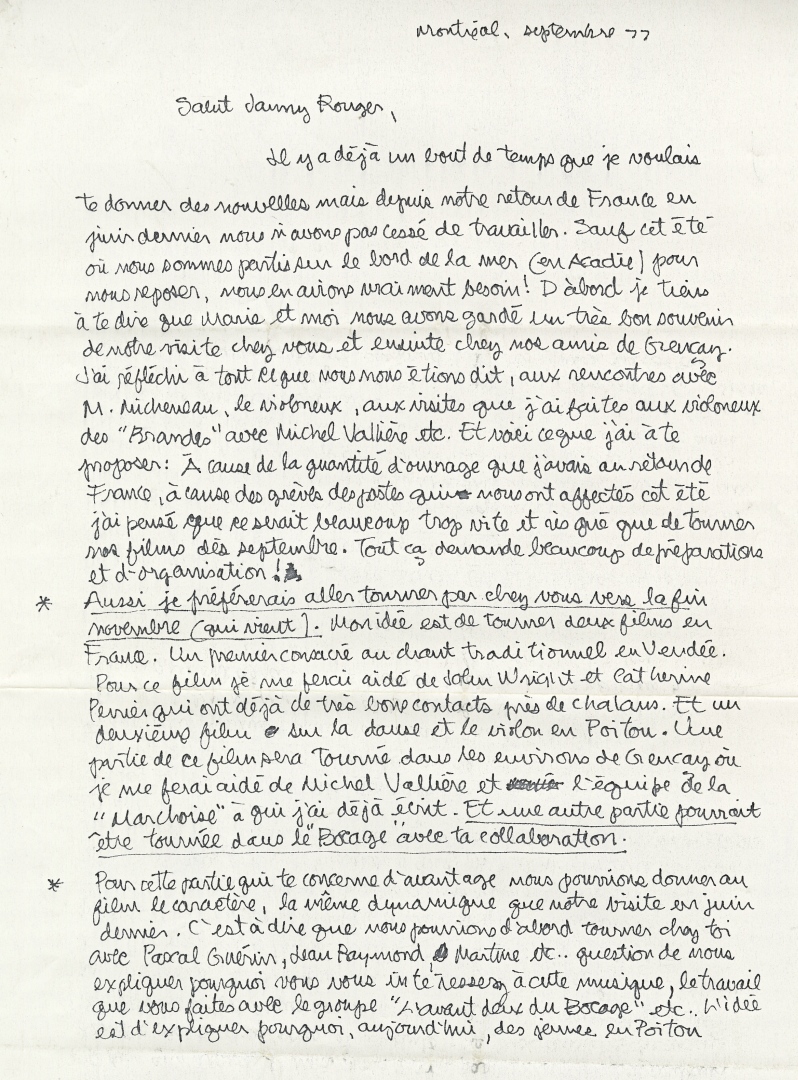 Montréal, septembre 77
Salut Janny Rouger,
Il y a déjà un bout de temps que je voulais
te donner des nouvelles mais depuis notre retour de France en
juin dernier nous n'avons pas cessé de travailler. Sauf cet été
où nous sommes partis sur le bord de la mer (en Acadie) pour
nous reposer, nous en avions vraiment besoin! D'abord je tiens
à te dire que Marie et moi nous avons gardé un très bon souvenir
de notre visite chez vous et ensuite chez nos amis de Gençay.
J'ai réfléchi à tout ce que nous nous étions dit, aux rencontres avec
M. Micheneau, le violoneux, aux visites que j'ai faites aux violoneux
des "Brandes" avec Michel Vallière etc. Et voici ce que j'ai à te
proposer: À cause de la quantité d'ouvrage que j'avais au retour de
France, à cause des grèves des postes qui nous ont affectés cet été
j'ai pensé que ce serait beaucoup trop vite et risqué que de tourner
nos films dès septembre. Tout ça demande beaucoup de préparations
et d'organisation!
* Aussi je préférerais aller tourner par chez vous vers la fin
novembre (qui vient). Mon idée est de tourner deux films en
France. Un premier consacré au chant traditionnel en Vendée.
Pour ce film je me ferai aidé de John Wright et Catherine
Perrier qui ont déjà de très bons contacts près de Chalans. Et un
deuxième film sur la danse et le violon en Poitou. Une
partie de ce film sera tourné dans les environs de Gençay où
je me ferai aidé de Michel Vallière et l'équipe de la
"Marchoise" à qui j'ai déjà écrit. Et une autre partie pourrait
être tournée dans le "Bocage" avec ta collaboration.
* Pour cette partie qui te concerne d'avantage nous pourrions donner au
film le caractère, la même dynamique que notre visite en juin
dernier. C'est à dire que nous pourrions d'abord tourner chez toi
avec Pascal Guérin, Jean Raymond, Martine etc.. question de nous
expliquer pourquoi vous vous intéressez à cette musique, le travail
que vous faites avec le groupe "L'avant deux du Bocage" etc.. L'idée
est d'expliquer pourquoi, aujourd'hui, des jeunes en Poitou